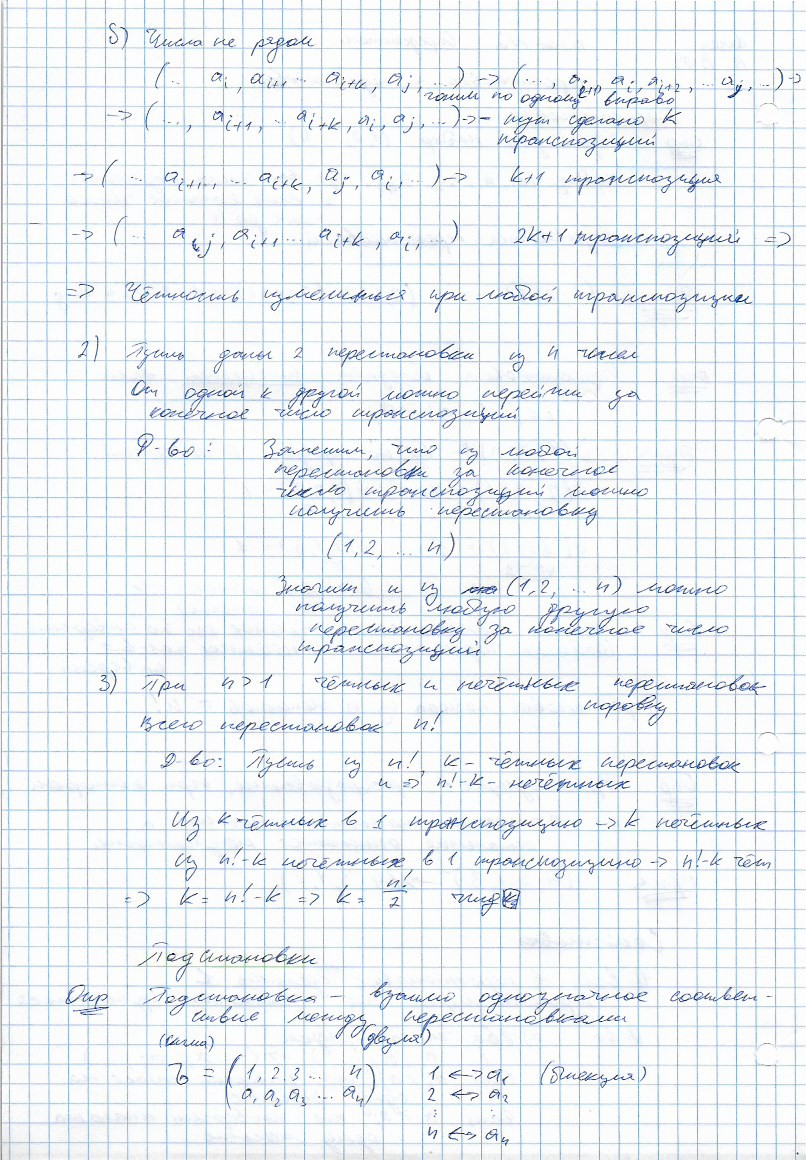 б) Числа не рядом
(... aᵢ, aᵢ₊₁ ... aᵢ₊ₖ, aⱼ, ...) -> (..., aᵢ₊₁, aᵢ, aᵢ₊₂, ... aⱼ, ...) ->
гоним по одному вправо
-> (..., aᵢ₊₁, ... aᵢ₊ₖ, aᵢ, aⱼ, ...) -> - тут сделано k
транспозиций
-> (... aᵢ₊₁, ... aᵢ₊ₖ, aⱼ, aᵢ, ...) -> k+1 транспозиция
-> (... aⱼ, aᵢ₊₁ ... aᵢ₊ₖ, aᵢ, ...) 2k+1 транспозиций =>
=> Чётность изменится при любой транспозиции
2) Пусть даны 2 перестановки из n чисел
От одной к другой можно перейти за
конечное число транспозиций
Д-во: Заметим, что из любой
перестановки за конечное
число транспозиций можно
получить перестановку
(1, 2, ... n)
Значит и из (1, 2, ... n) можно
получить любую другую
перестановку за конечное число
транспозиций
3) При n > 1 чётных и нечётных перестановок
поровну
Всего перестановок n!
Д-во: Пусть из n! k - чётных перестановок
и => n!-k - нечётных
Из k чётных в 1 транспозицию -> k нечётных
из n!-k нечётных в 1 транспозицию -> n!-k чёт
=> k = n!-k => k = n!/2 чтд
Подстановки
Опр Подстановка - взаимо однозначное соответ-
ствие между перестановками
(сигма) (двумя)
σ = (1, 2, 3 ... n) 1 <-> a₁ (биекция)
(a₁ a₂ a₃ ... aₙ) 2 <-> a₂
⋮ ⋮
n <-> aₙ